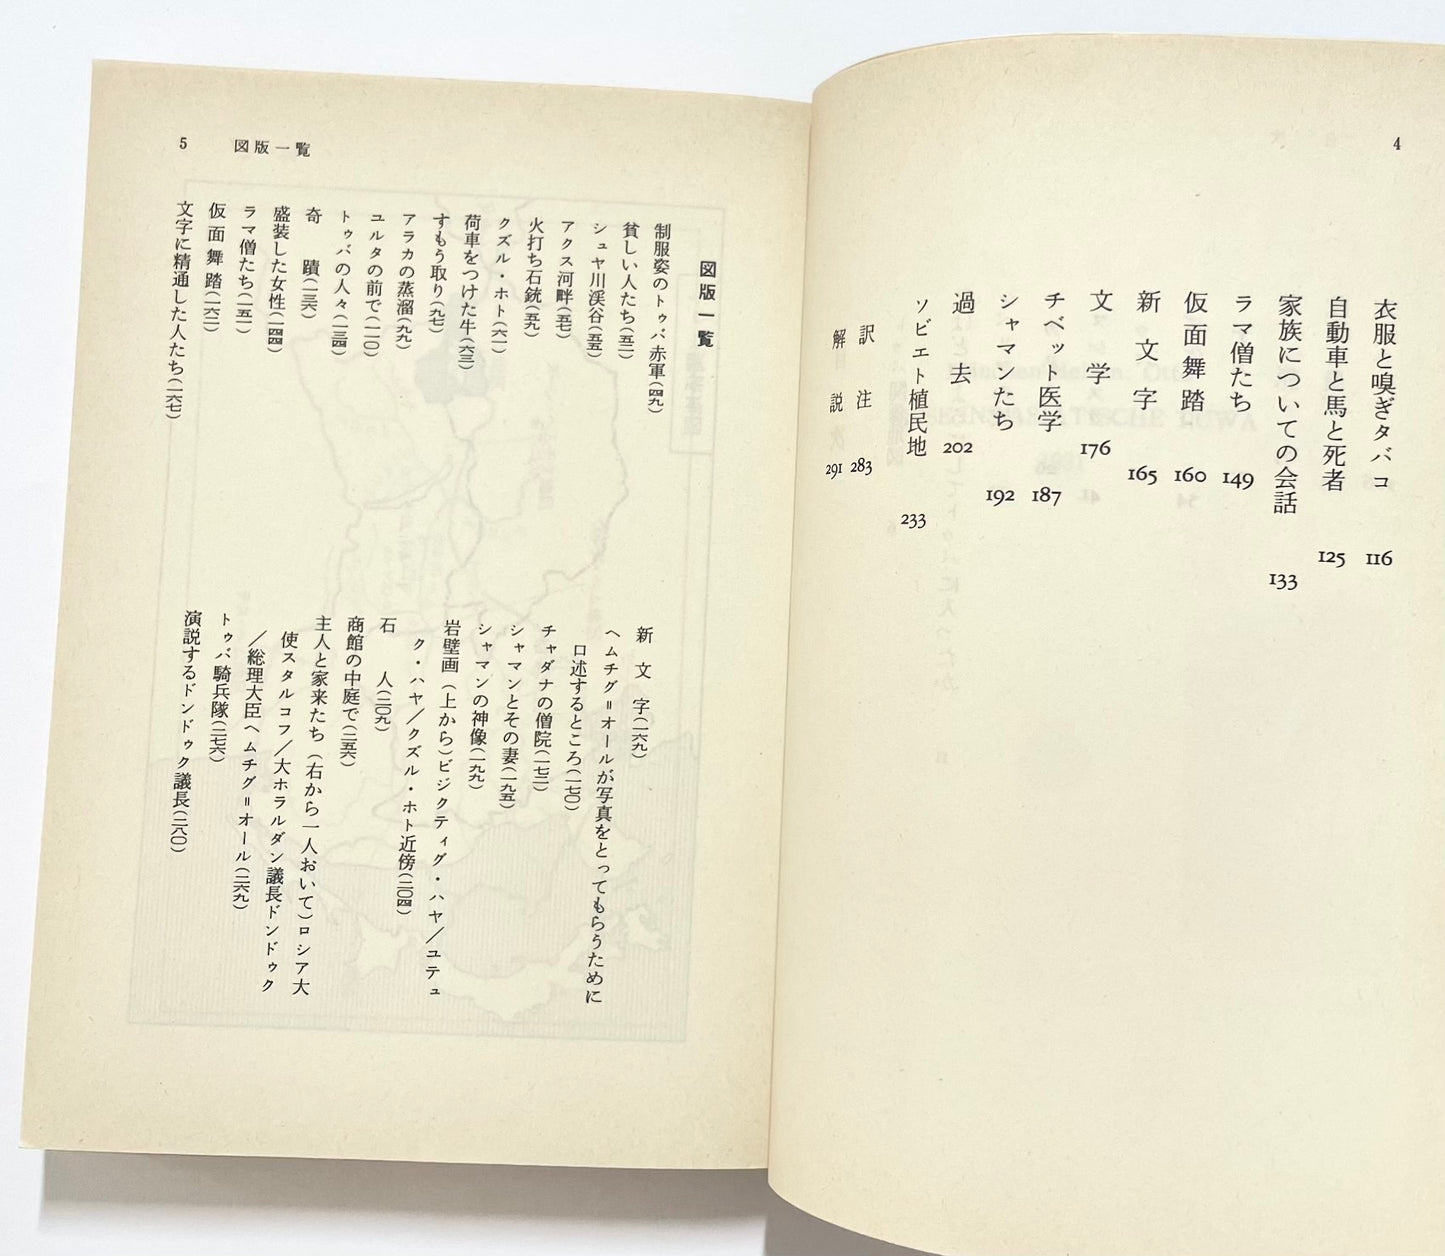 4
衣服と嗅ぎタバコ 116
自動車と馬と死者 125
家族についての会話 133
ラマ僧たち 149
仮面舞踏 160
新文字 165
文学 176
チベット医学 187
シャマンたち 192
過去 202
ソビエト植民地 233
訳注 283
解説 291
5 図版一覧
図版一覧
制服姿のトゥバ赤軍(四九)
貧しい人たち(五二)
シュヤ川渓谷(五五)
アクス河畔(五七)
火打ち石銃(五九)
クズル・ホト(六一)
荷車をつけた牛(六三)
すもう取り(九七)
アラカの蒸溜(九九)
ユルタの前で(一二〇)
トゥバの人々(一三四)
奇蹟(一三六)
盛装した女性(一四四)
ラマ僧たち(一五一)
仮面舞踏(一六二)
文字に精通した人たち(一六七)
新文字(一六九)
ヘムチグ゠オールが写真をとってもらうために
口述するところ(一七〇)
チャダナの僧院(一七二)
シャマンとその妻(一九五)
シャマンの神像(一九九)
岩壁画(上から)ビジクティグ・ハヤ/ユテュ
ク・ハヤ/クズル・ホト近傍(二〇四)
石人(二〇九)
商館の中庭で(二五六)
主人と家来たち(右から一人おいて)ロシア大
使スタルコフ/大ホラルダン議長ドンドゥク
/総理大臣ヘムチグ゠オール(二六九)
トゥバ騎兵隊(二七六)
演説するドンドゥク議長(二八〇)